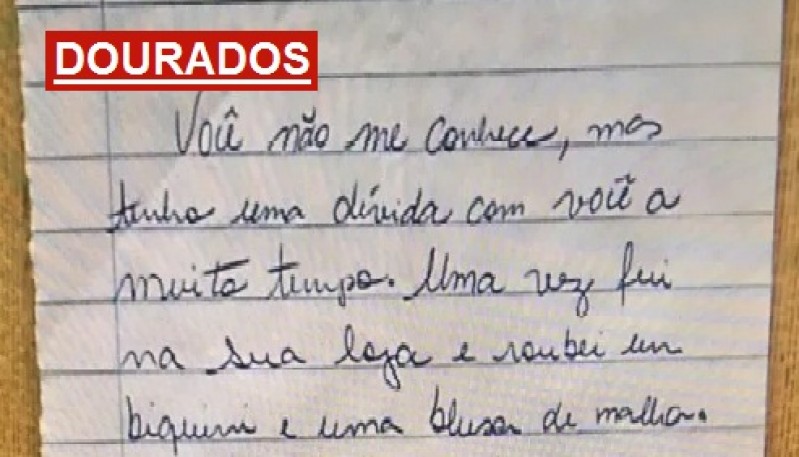 DOURADOS
Você não me conhece, mas
tenho uma dívida com você a
muito tempo. Uma vez fui
na sua loja e roubei um
biquini e uma blusa de malha.